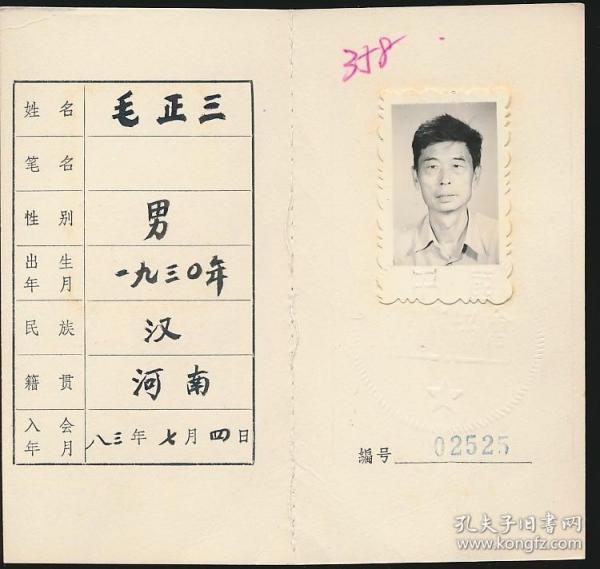 姓名 毛正三
笔名
性别 男
出生年月 一九三〇年
民族 汉
籍贯 河南
入会年月 八三年七月四日
358
编号 02525
孔夫子旧书网
www.kongfz.com